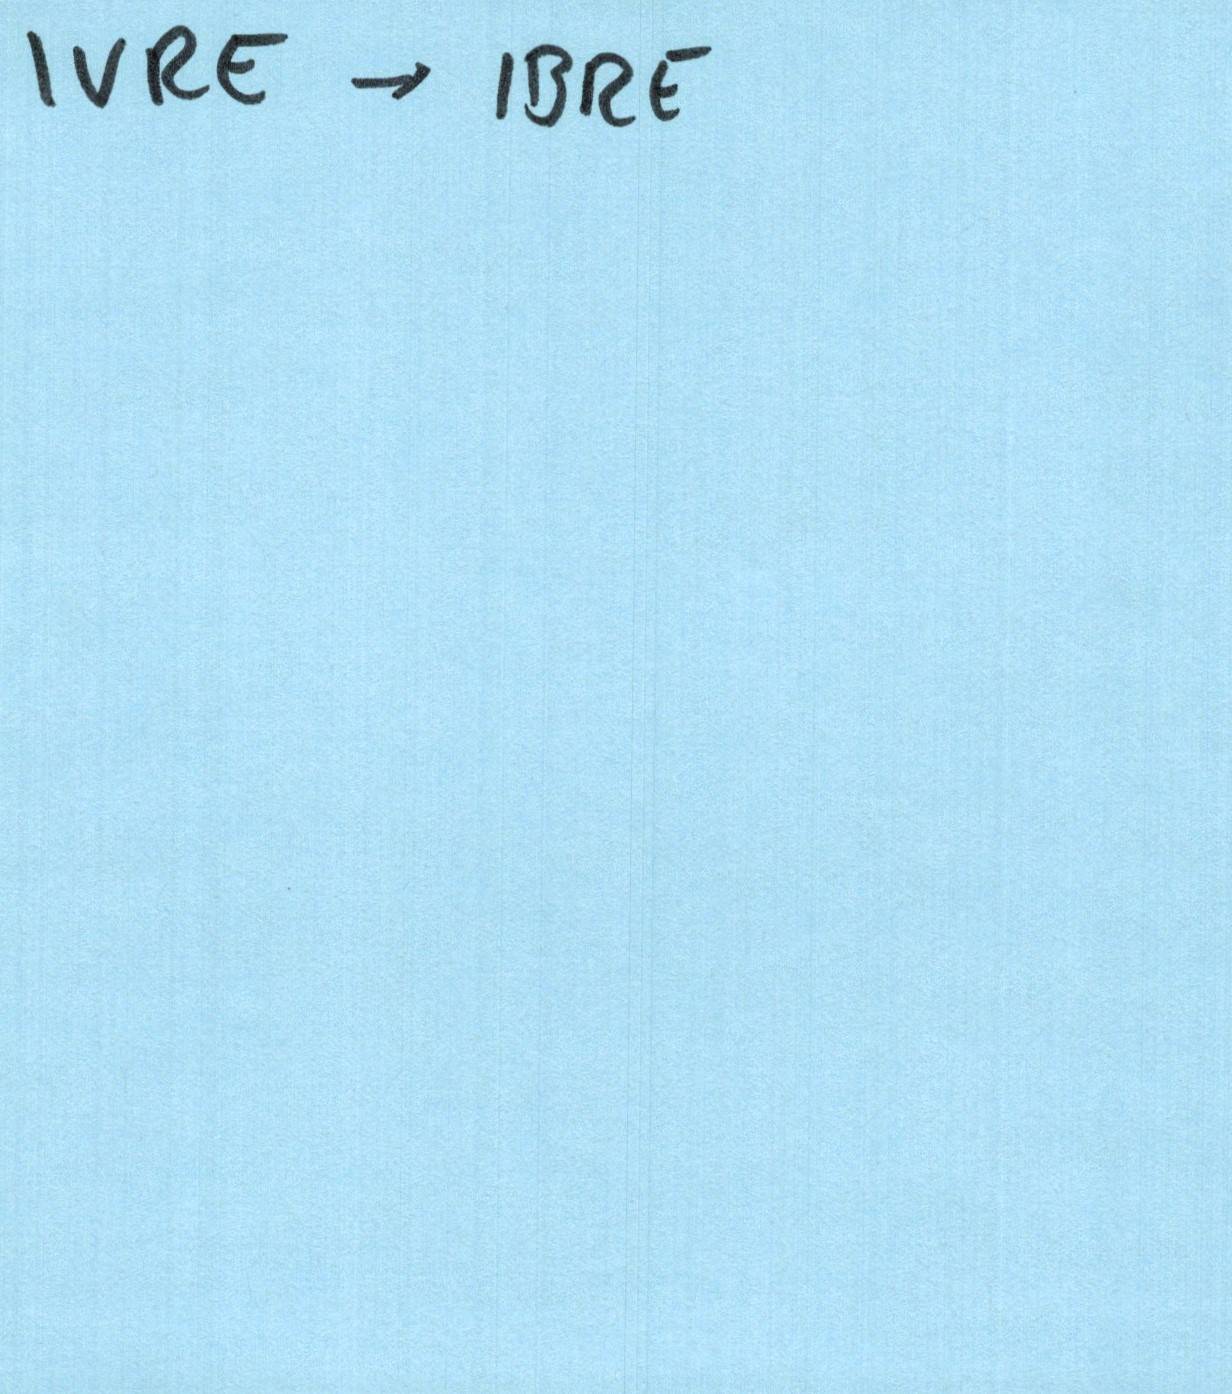 IVRE → IBRE